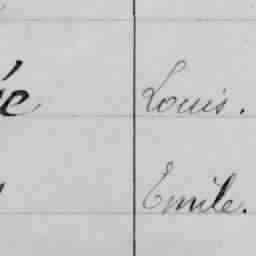 Louis.
Emile.